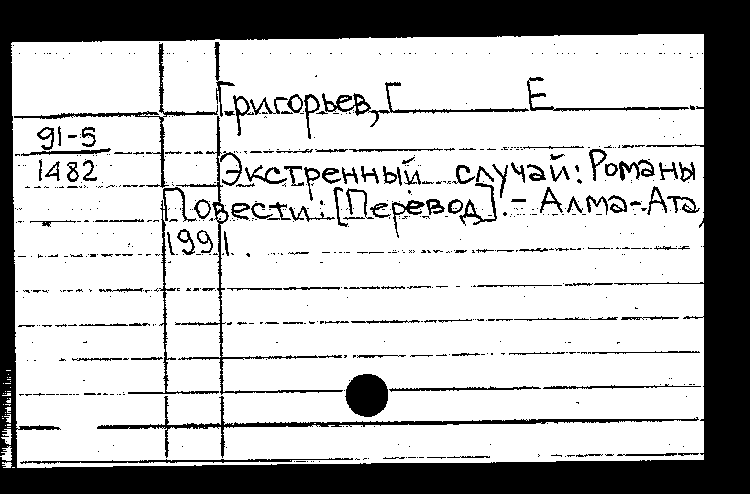 Григорьев, Г Е
91-5
1482
Экстренный случай: Романы
Повести: [Перевод]. - Алма-Ата,
1991.